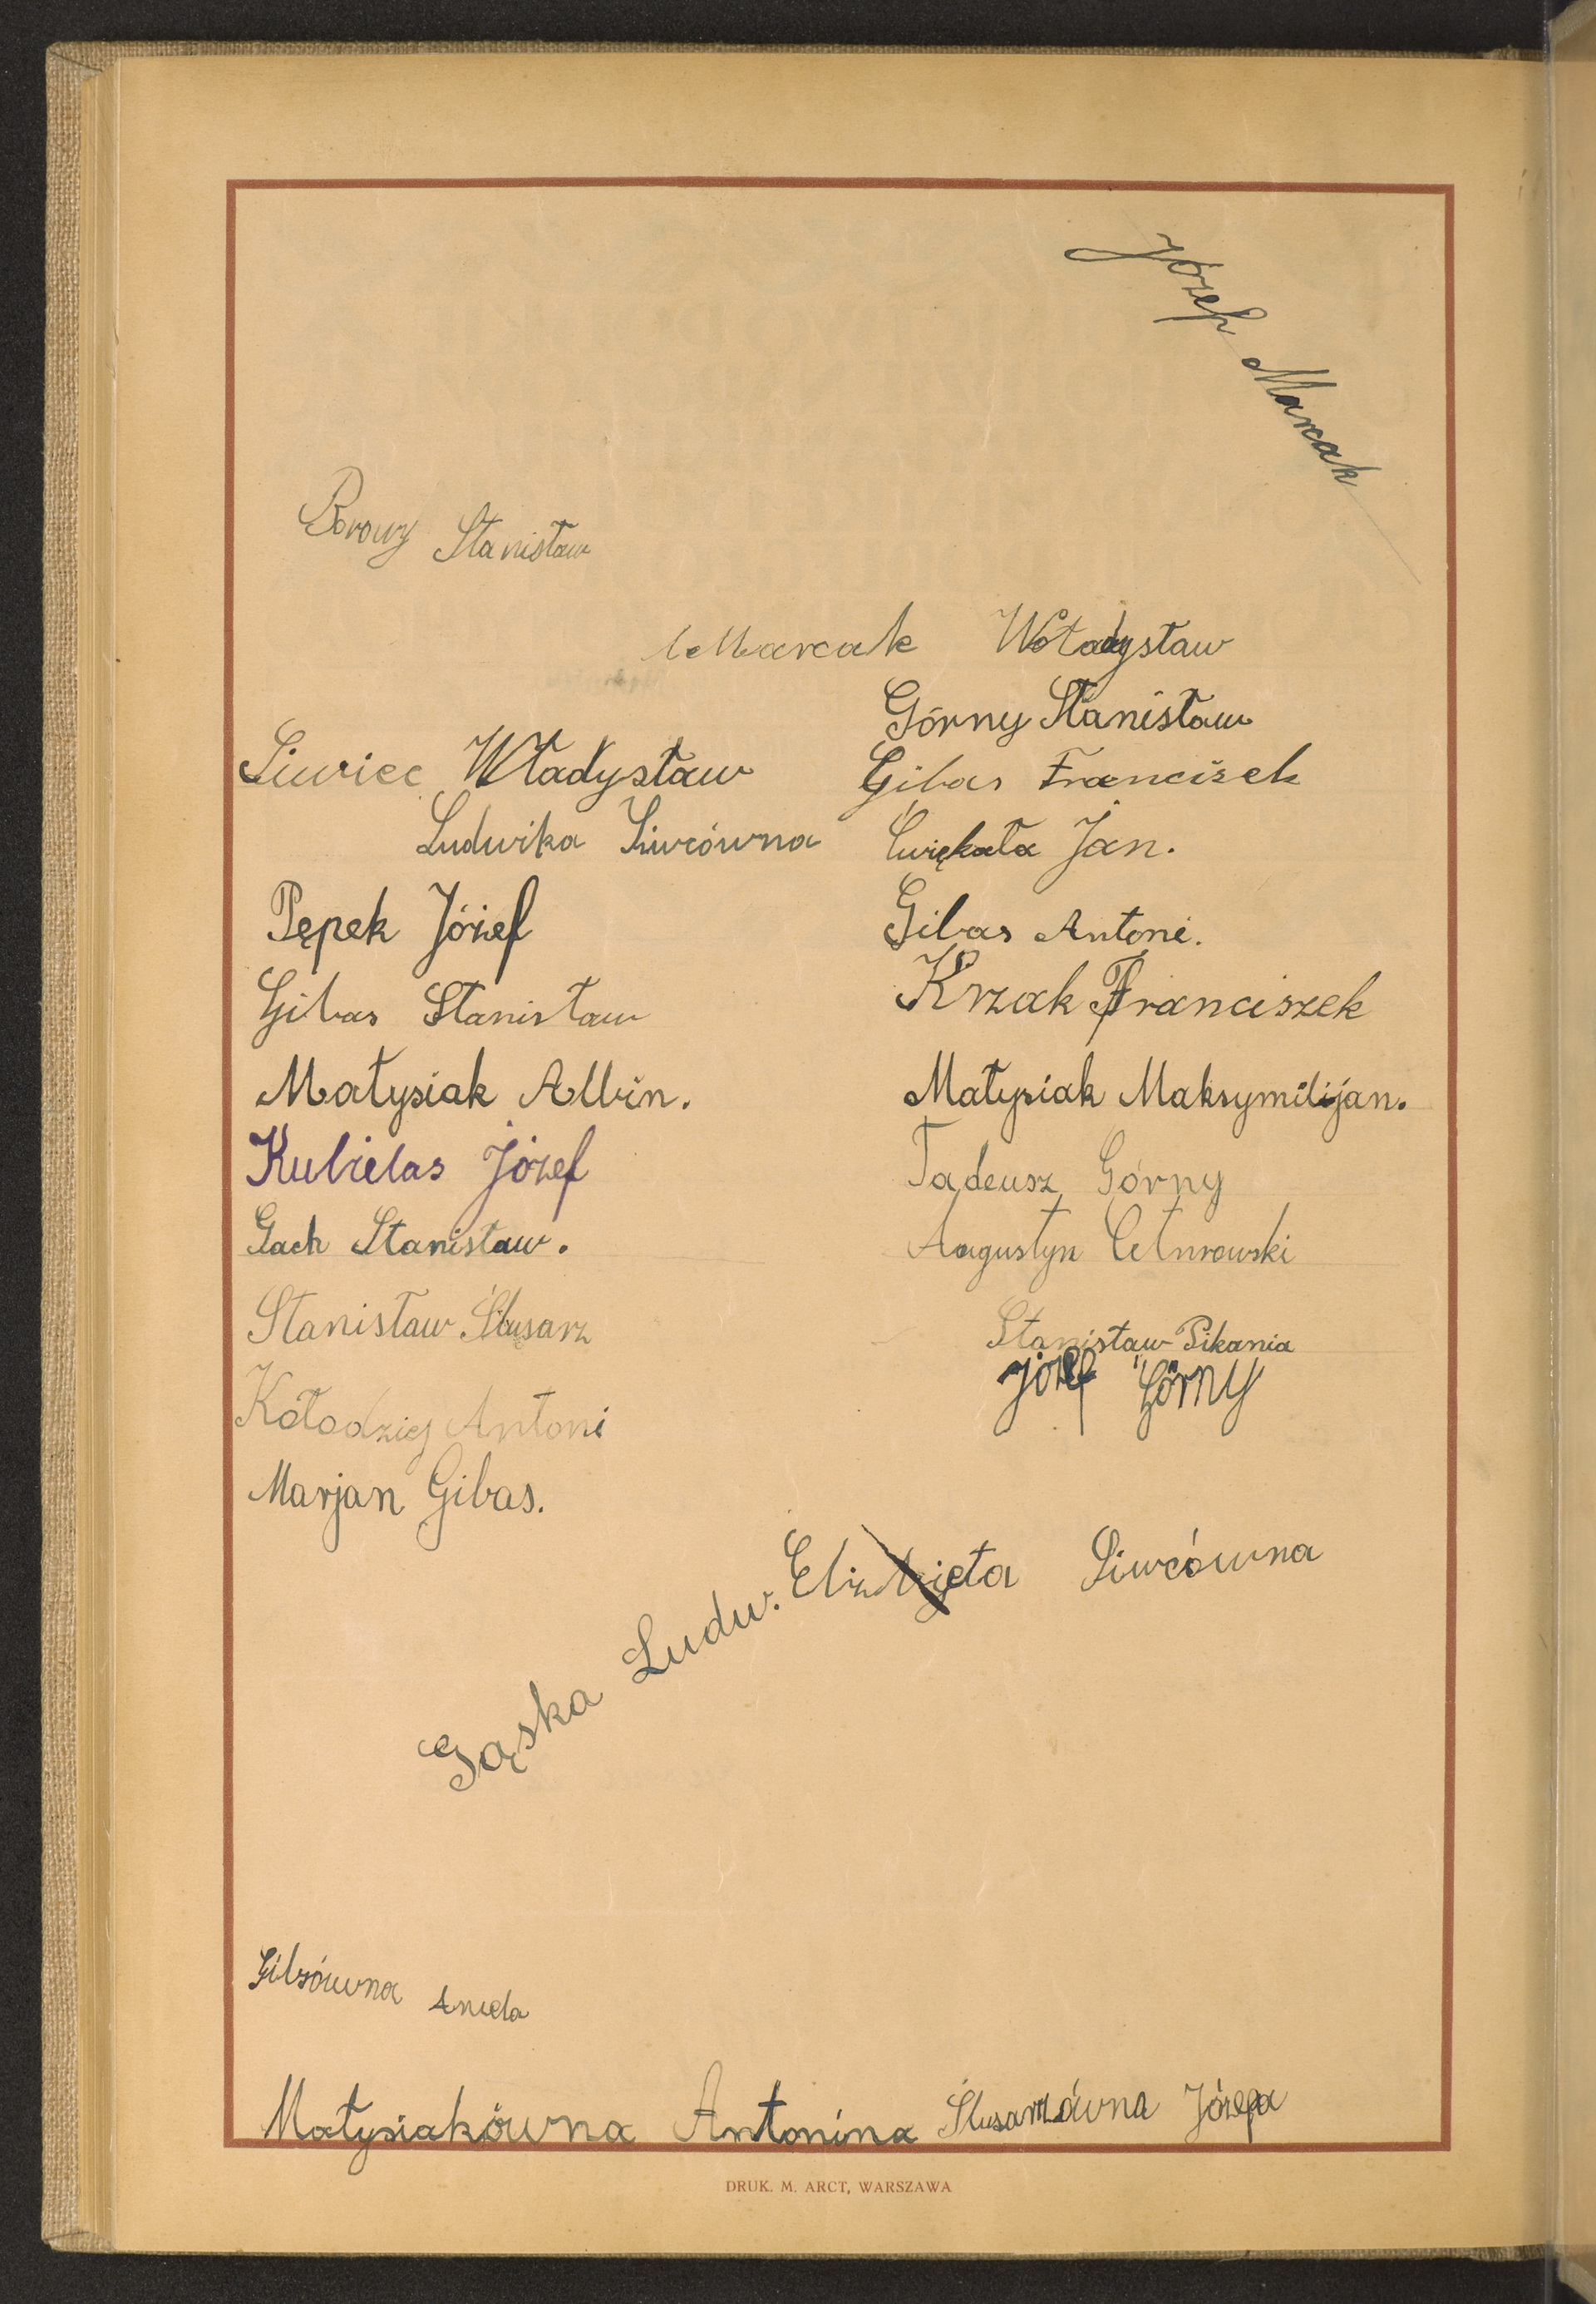 Józef Marcak
Borowy Stanisław
Marcak Władysław
Górny Stanisław
Siwiec Władysław
Gibas Franciszek
Ludwika Siwcówna
Ćwiękała Jan.
Pępek Józef
Gibas Antoni.
Gibas Stanisław
Krzak Franciszek
Małysiak Albin.
Małysiak Maksymilijan.
Kubielas Józef
Tadeusz Górny
Gach Stanisław.
Augustyn Cetnrowski
Stanisław Ślusarz
Stanisław Pikania
Józef Górny
Kołodziej Antoni
Marjan Gibas.
Elżbieta Siwcówna
Gąska Ludw.
Gibsówna Aniela
Małysiakówna Antonina
Ślusarzówna Józefa
DRUK. M. ARCT, WARSZAWA